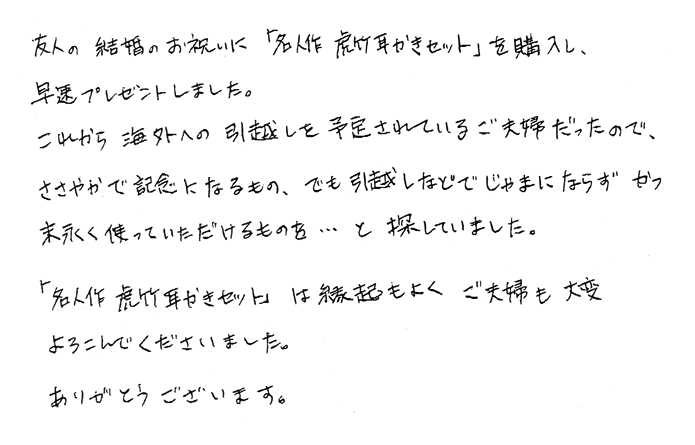 友人の 結婚のお祝いに「名人作 虎竹耳かきセット」を購入し、
早速プレゼントしました。
これから 海外への 引越しを 予定されているご夫婦だったので、
ささやかで記念になるもの、でも引越しなどでじゃまにならず かつ
末永く使っていただけるものを… と 探していました。
「名人作 虎竹耳かきセット」は縁起もよく ご夫婦も 大変
よろこんでくださいました。
ありがとうございます。